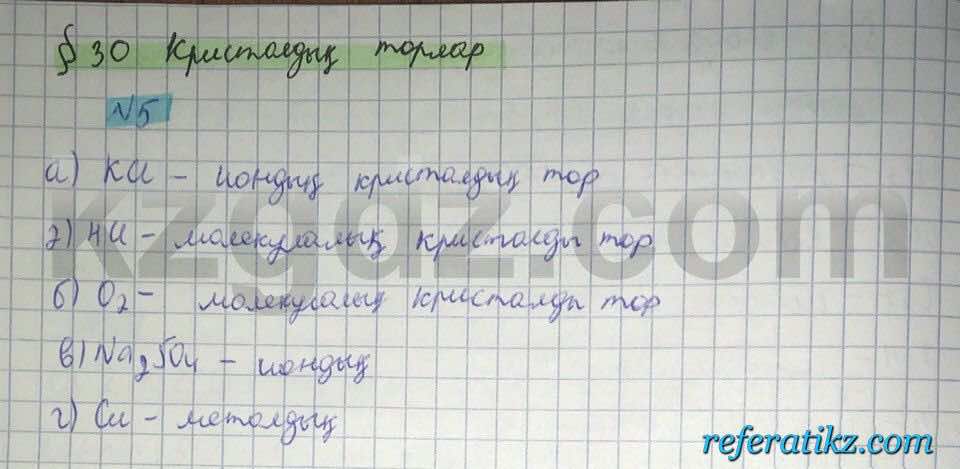 § 30 Кристалдық торлар
№5
а) KCl – иондық кристалдық тор
ә) HCl – молекулалық кристалды тор
б) O2 – молекулалық кристалды тор
в) Na2SO4 – иондық
г) Cu – металдық
kzgdz.com
referatikz.com